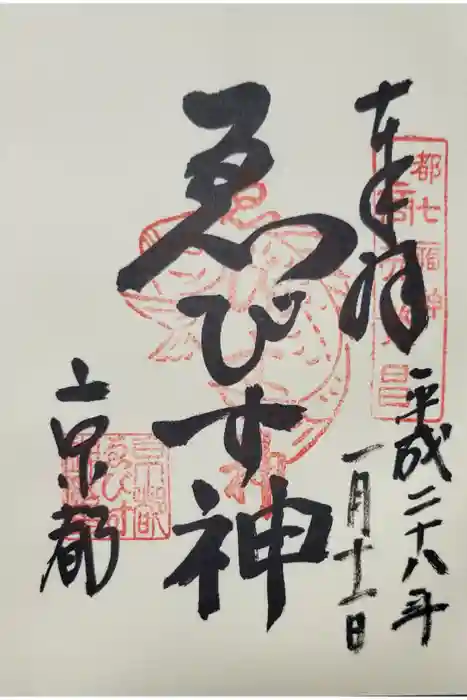 奉拝
都七福神
平成二十八年
一月十一日
ゑびす神
京都
ゑびす